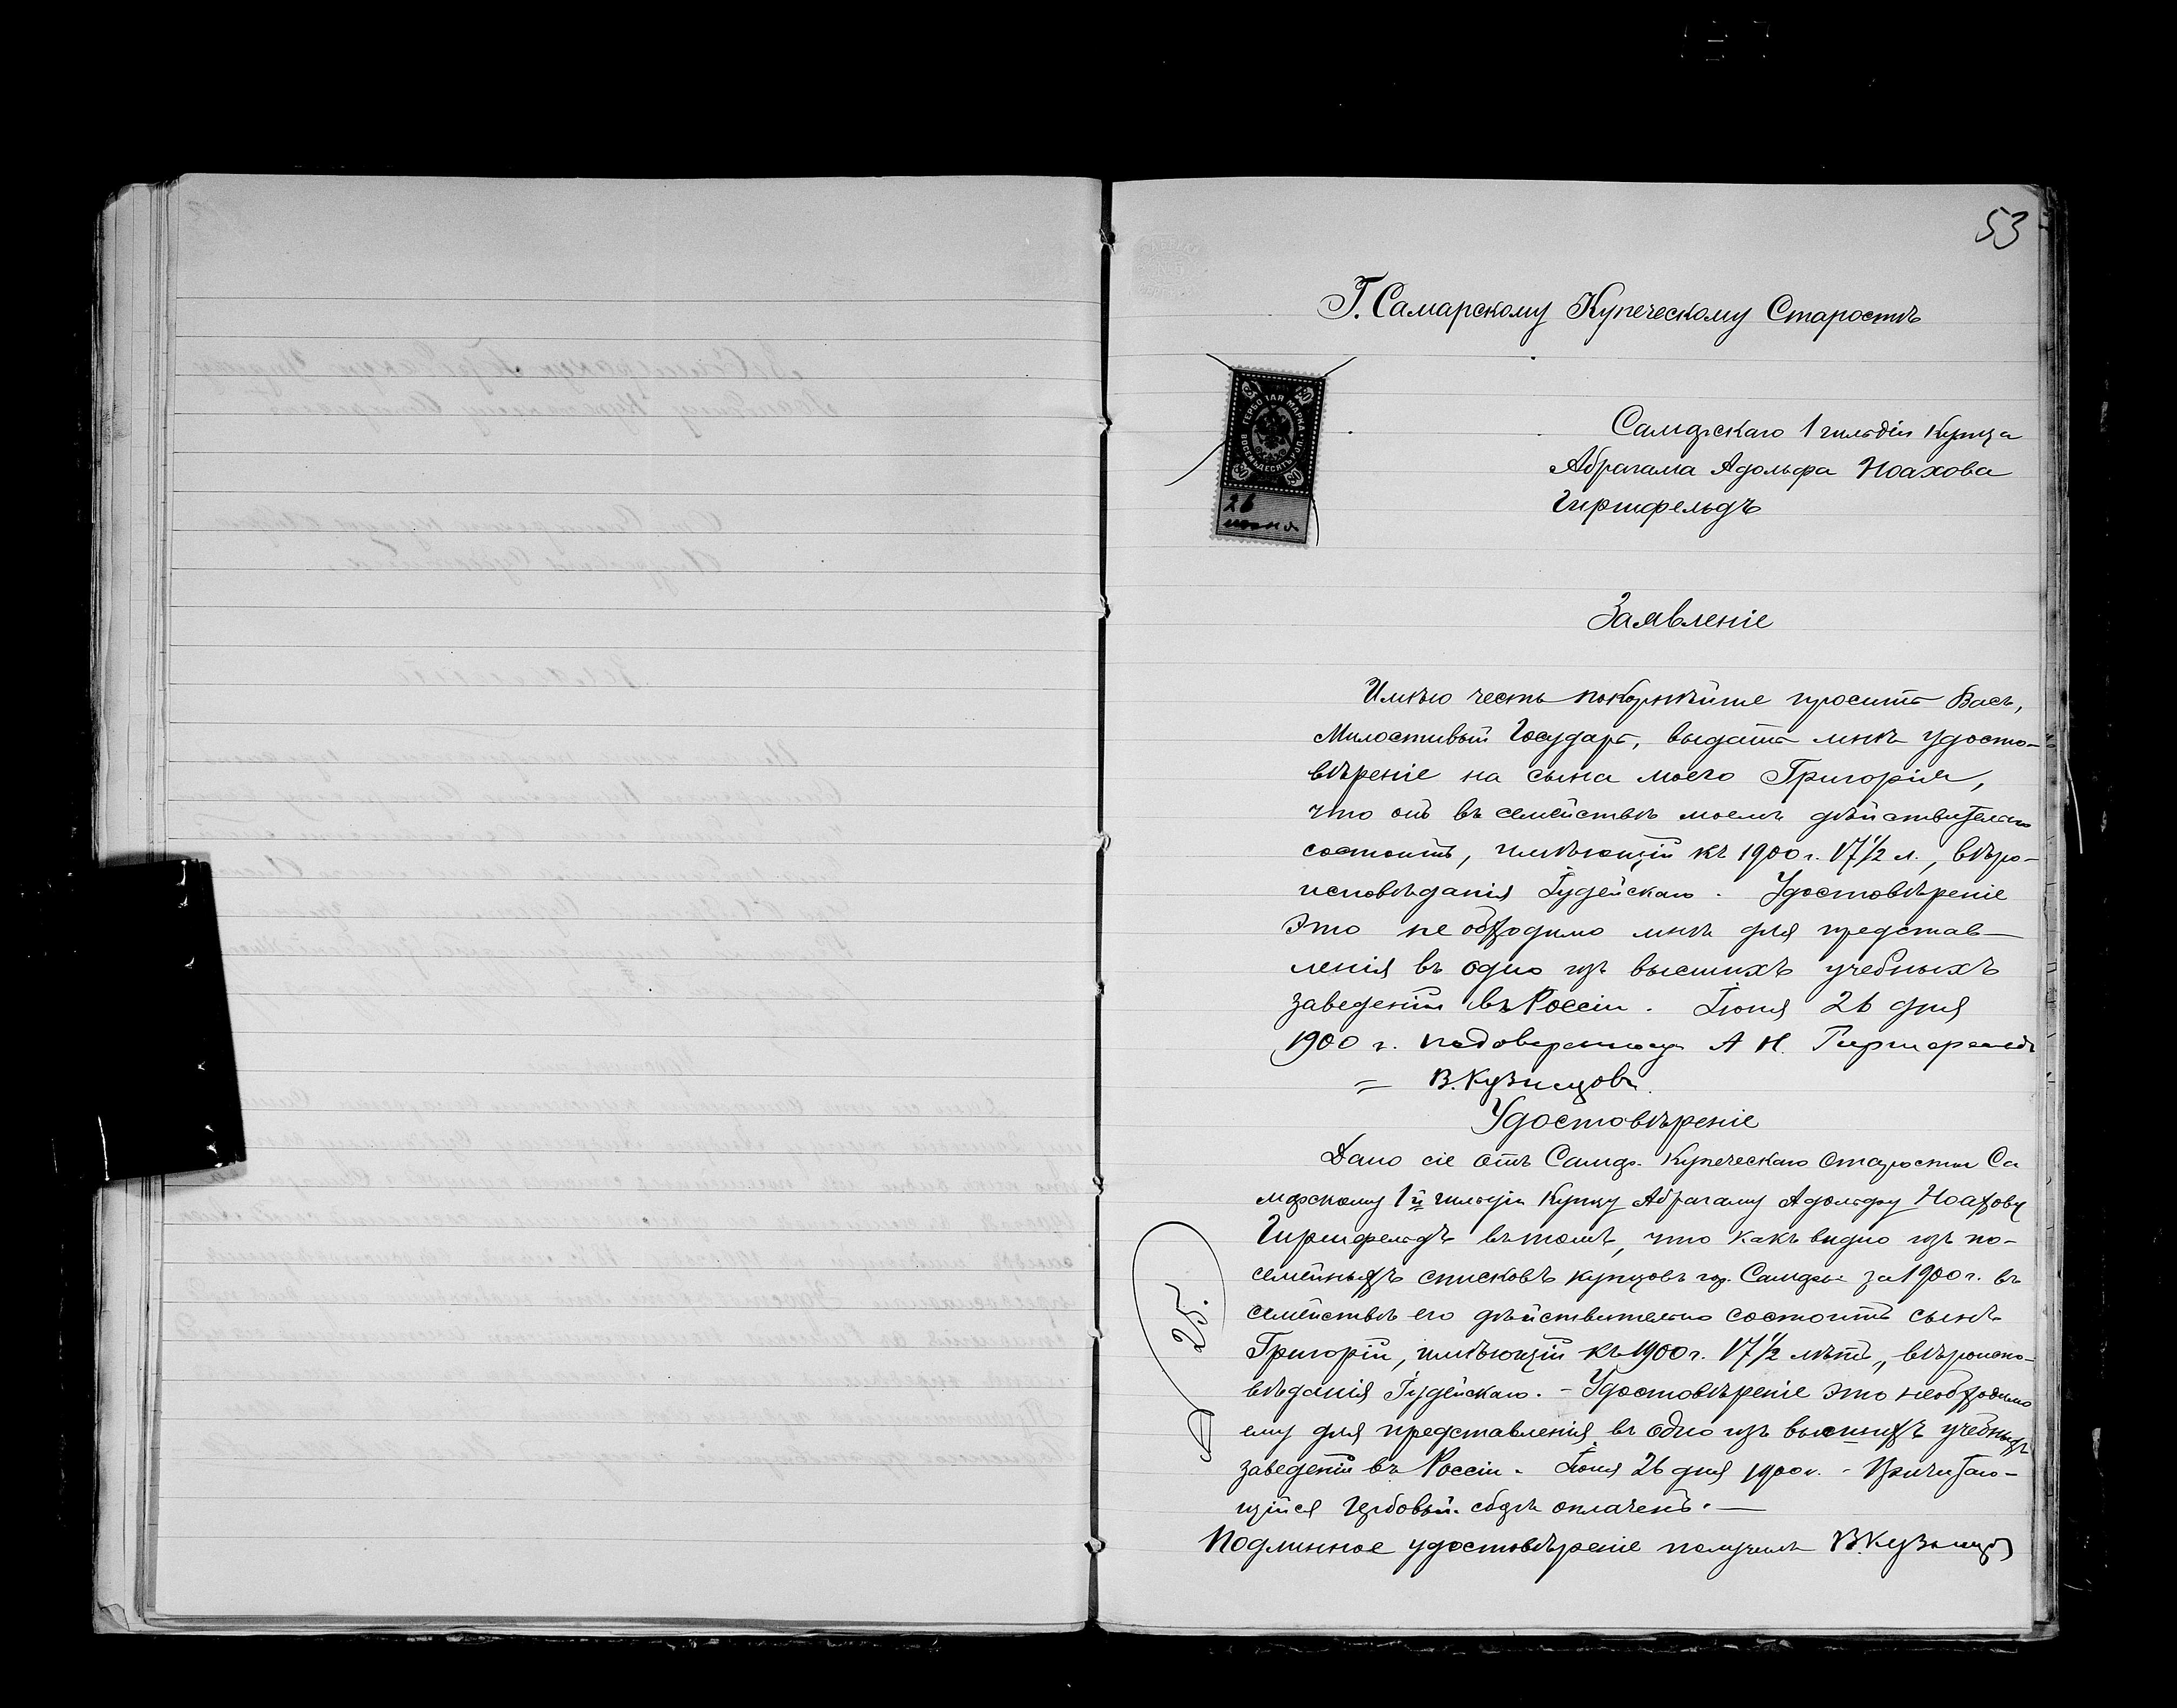 53
Г. Самарскому Купеческому Старостѣ
ГЕРБОВАЯ МАРКА
ВОСЕМЬДЕСЯТЪ КОП.
80
26
июня
Самарскаго 1 гильдіи Купца
Абрагама Адольфа Ноахова
Гиршфельдъ
Заявленіе
Имѣю честь покорнѣйше просить Васъ,
Милостивый Государь, выдать мнѣ удосто-
вѣреніе на сына моего Григорія,
что онъ въ семействѣ моемъ дѣйствительно
состоитъ, имѣющій къ 1900 г. 17 1/2 л., вѣро-
исповѣданія Іудейскаго. Удостовѣреніе
это необходимо мнѣ для представ-
ленія въ одно изъ высшихъ учебныхъ
заведеній въ Россіи. Іюня 26 дня
1900 г. А Н. Гиршфельдъ
В. Кузнецовъ.
Удостовѣреніе
Дано сіе отъ Самар. Купеческаго Старосты Са
марскому 1й гильдіи Купцу Абрагаму Адольфу Ноахову
Гиршфельдъ въ томъ, что какъ видно изъ по-
семейныхъ списковъ купцовъ гор. Самары за 1900 г. въ
семействѣ его дѣйствительно состоитъ сынъ
Григорій, имѣющій къ 1900 г. 17 1/2 лѣтъ, вѣроиспо-
вѣданія Іудейскаго. - Удостовѣреніе это необходимо
ему для представленія въ одно изъ высшихъ учебныхъ
заведеній въ Россіи. Іюня 26 дня 1900 г. - Причитаю-
щійся Гербовый сборъ оплаченъ. —
Подлинное удостовѣреніе получилъ В. Кузнецов
25.